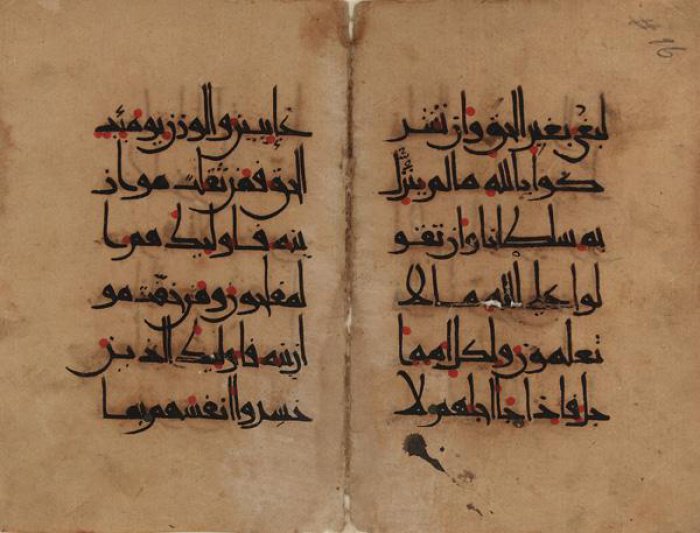 لبغى بغير الحق وان تشر
كوا بالله ما لم ينزل
به سلطانا وان تقو
لوا على الله ما لا
تعلمون ولكل امة ا
جل فاذا جا اجلهم لا
غايبين والوزن يومئذ
الحق فمن ثقلت مواز
ينه فاوليك هم ا
لمفلحون ومن خفت مو
ازينه فاوليك الذين
خسروا انفسهم بما